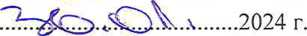 30.01.2024 г.